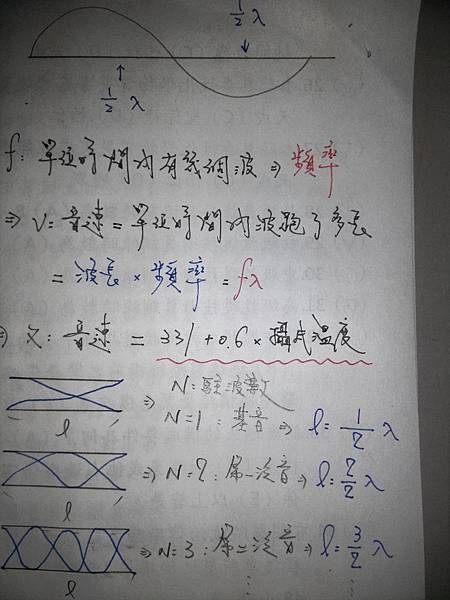 ½ λ
½ λ
f: 單位時間內有幾個波 ⇒ 頻率
⇒ V: 音速 = 單位時間內波跑了多長
= 波長 × 頻率 = fλ
⇒ 又: 音速 = 331 + 0.6 × 攝氏溫度
⇒ N: 駐波數
N=1 : 基音 ⇒ l = 1/2 λ
l
⇒ N=2 : 第一泛音 ⇒ l = 2/2 λ
l
⇒ N=3 : 第二泛音 ⇒ l = 3/2 λ
l